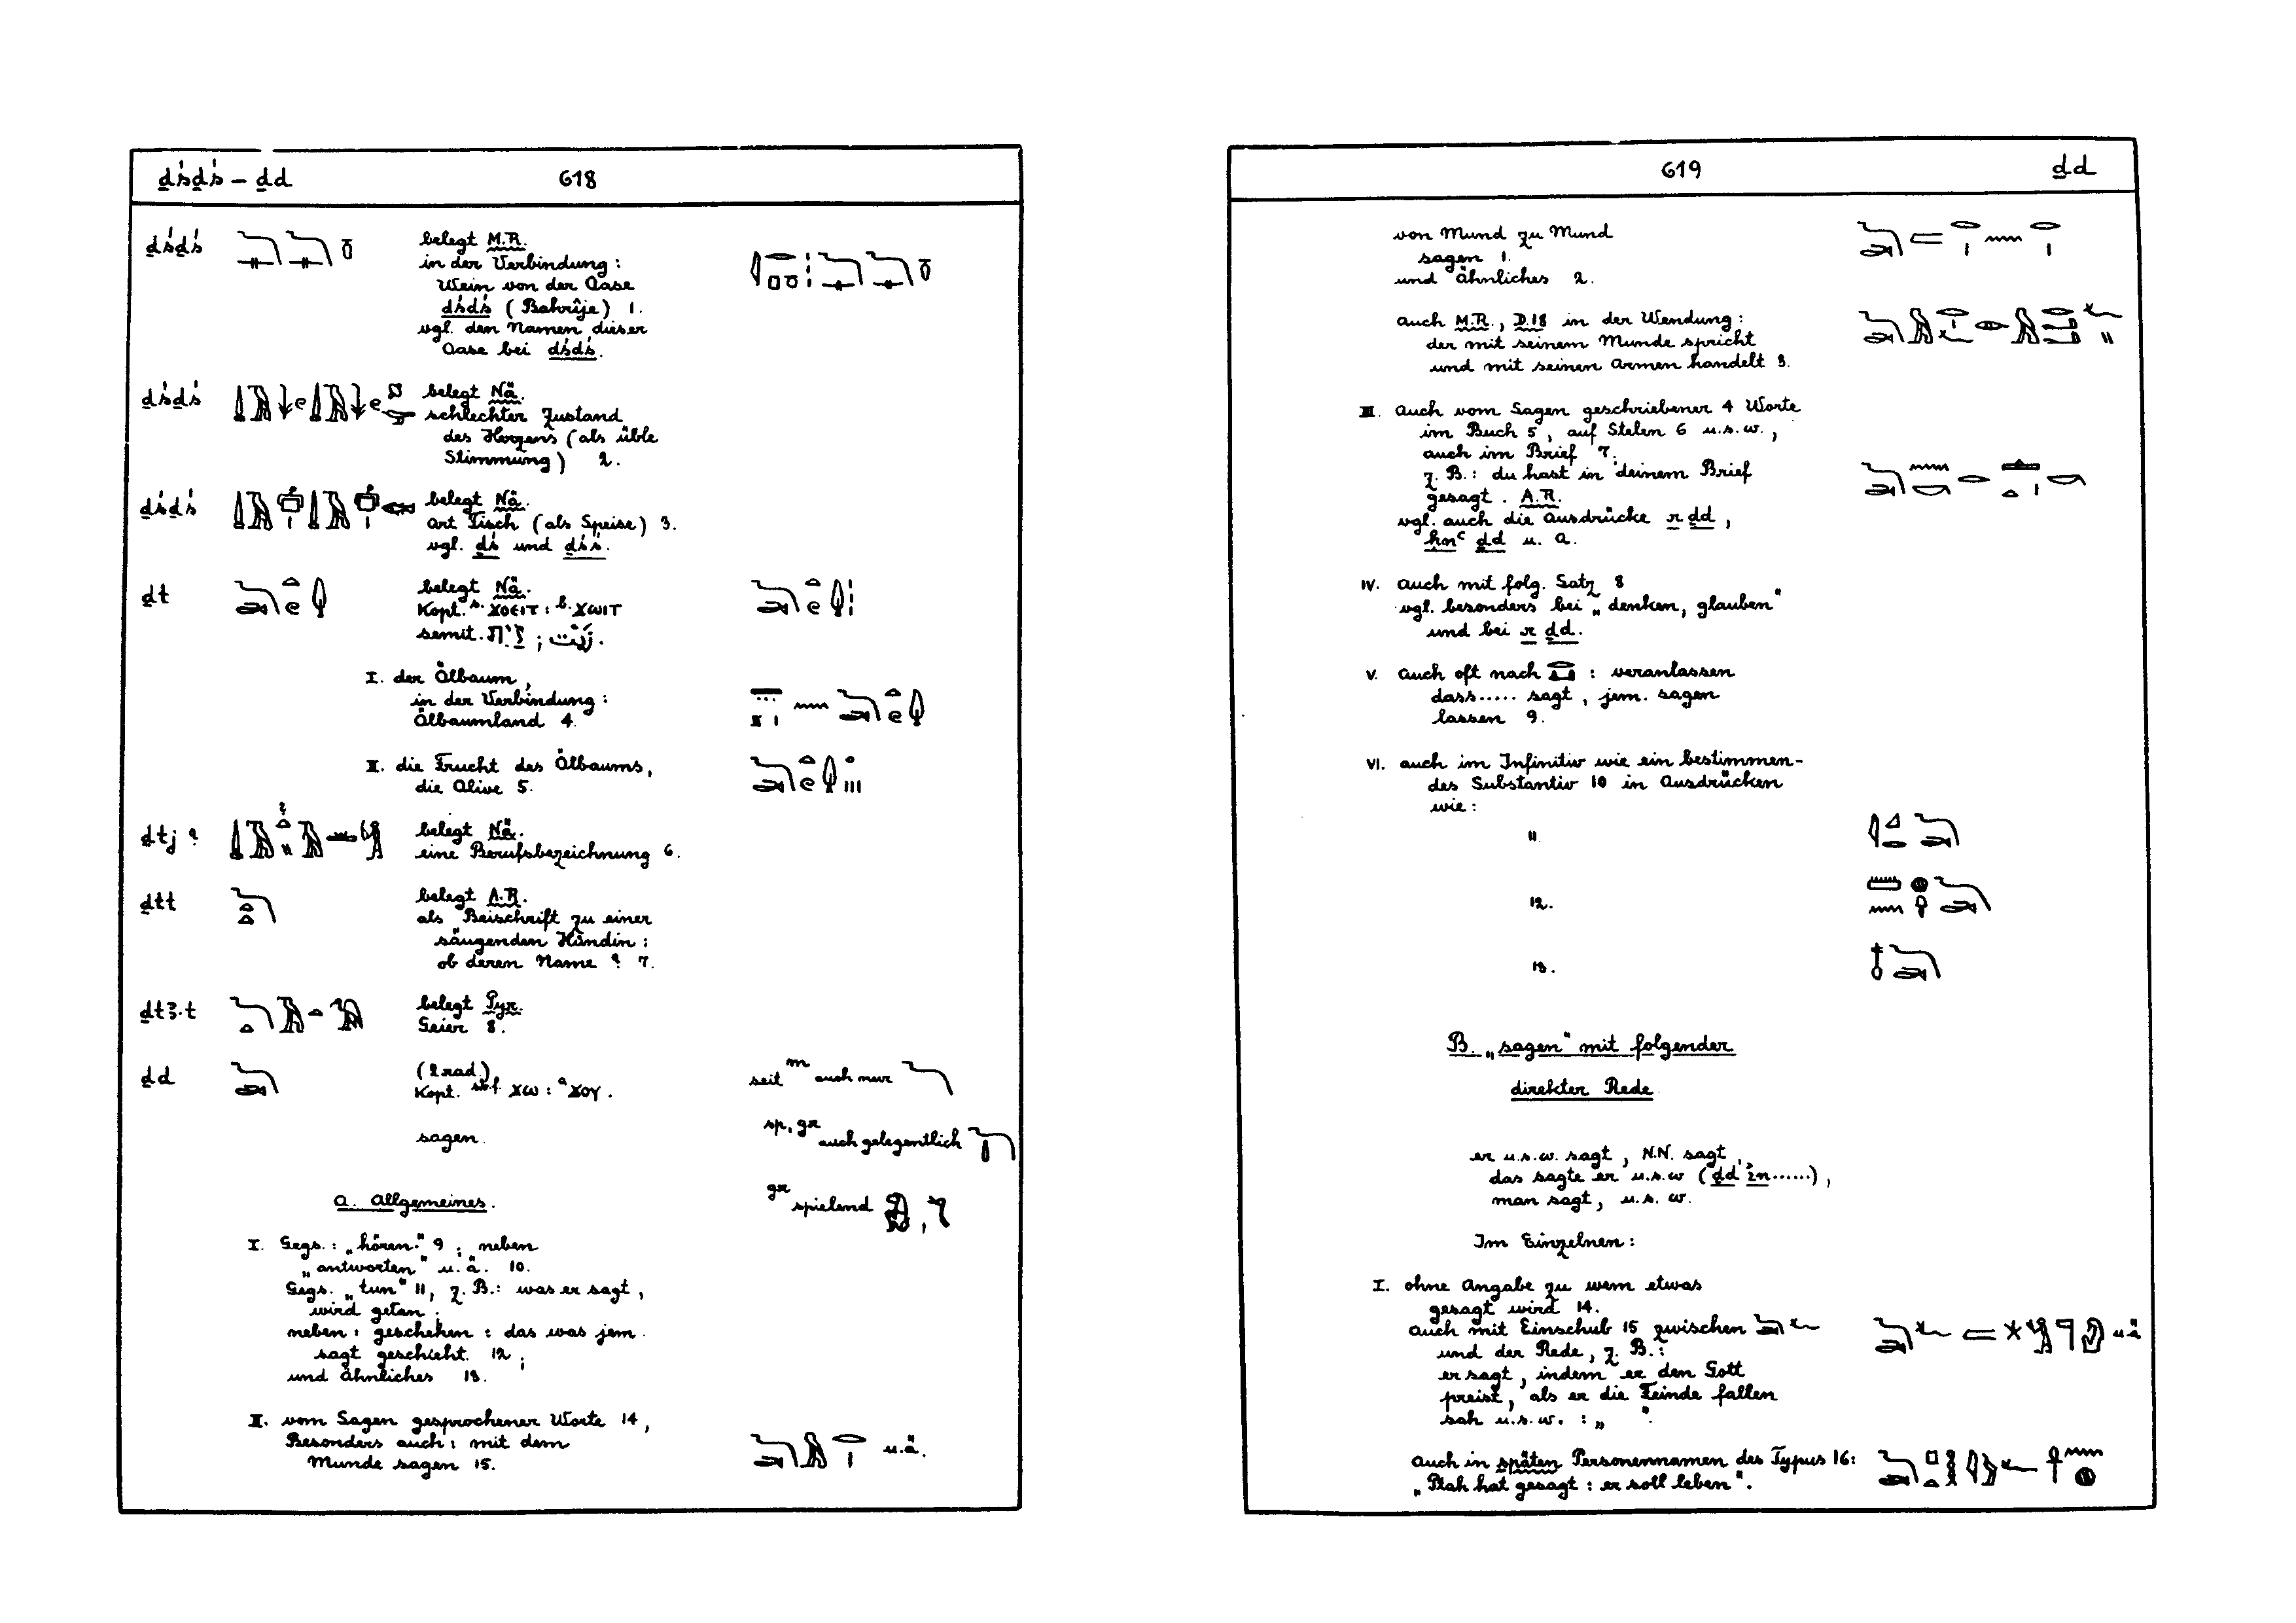 ḏśḏś – ḏd
618
ḏśḏś
belegt M.R.
in der Verbindung:
Wein von der Oase
ḏśḏś (Baḥrîje) 1.
vgl. den Namen dieser
Oase bei ḏśḏś.
ḏśḏś
belegt Nä.
schlechter Zustand
des Herzens (als üble
Stimmung) 2.
ḏśḏś
belegt Nä.
Art Fisch (als Speise) 3.
vgl. ḏś und ḏśś.
ḏt
belegt Nä.
Kopt. s. ϪΟΕΙΤ : b. ϪΩΙΤ
semit. זַיִת ; زَيْت.
I. der Ölbaum,
in der Verbindung:
Ölbaumland 4.
II. die Frucht des Ölbaums,
die Olive 5.
ḏtj ?
belegt Nä.
eine Berufsbezeichnung 6.
ḏtt
belegt A.R.
als Beischrift zu einer
säugenden Hündin:
ob deren Name? 7.
ḏtꜣ.t
belegt Pyr.
Geier 8.
ḏd
(2rad.)
Kopt. sbf. ϪΩ : a ϪΟΥ.
seit m auch nur
sagen.
sp, gr auch gelegentlich
gr spielend
A. Allgemeines.
I. Gegs.: „hören" 9 ; neben
„antworten" u.ä. 10.
Gegs. „tun" 11, z.B.: was er sagt,
wird getan;
neben: geschehen: das was jem.
sagt geschieht. 12 ;
und ähnliches 13.
II. vom Sagen gesprochener Worte 14,
Besonders auch: mit dem
Munde sagen 15.
u.ä.
619
ḏd
von Mund zu Mund
sagen 1.
und ähnliches 2.
auch M.R., D.18 in der Wendung:
der mit seinem Munde spricht
und mit seinen Armen handelt 3.
III. auch vom Sagen geschriebener 4 Worte
im Buch 5, auf Stelen 6 u.s.w.,
auch im Brief 7.
z.B.: du hast in deinem Brief
gesagt. A.R.
vgl. auch die Ausdrücke r ḏd,
ḥnꜥ ḏd u. a.
IV. auch mit folg. Satz 8
vgl. besonders bei „denken, glauben"
und bei r ḏd.
V. auch oft nach : veranlassen
dass..... sagt, jem. sagen
lassen 9.
VI. auch im Infinitiv wie ein bestimmen-
des Substantiv 10 in Ausdrücken
wie:
11.
12.
13.
B. „sagen" mit folgender
direkter Rede.
er u.s.w. sagt, N.N. sagt,
das sagte er u.s.w (ḏd ı͗n......),
man sagt, u.s.w.
Im Einzelnen:
I. ohne Angabe zu wem etwas
gesagt wird 14.
auch mit Einschub 15 zwischen
und der Rede, z.B.:
er sagt, indem er den Gott
preist, als er die Feinde fallen
sah u.s.w. : „ ".
u.ä
auch in späten Personennamen des Typus 16:
„Ptah hat gesagt: er soll leben".